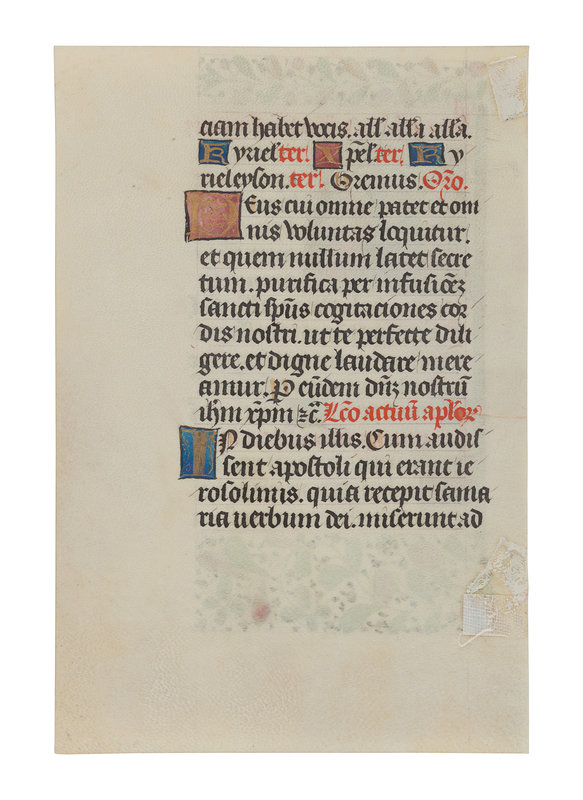 ciam habet vocis. all'a all'a all'a.
Kyriel' ter. Xp̄el' ter. Ky
rieleyson. ter. Oremus. Or̄o.
Deus cui omne patet et om
nis voluntas loquitur.
et quem nullum latet secre
tum. purifica per infusioēꝫ
sancti sp̄us cogitaciones cor
dis nostri. ut te perfecte dili
gere. et digne laudare mere
amur. P eūdem dn̄ꝫ nostrū
ihm xp̄m ꝛc̄. Lc̄o actuū ap̄lor
IN diebus illis. Cum audis
sent apostoli qui erant ie
rosolimis. quia recepit sama
ria uerbum dei. miserunt ad